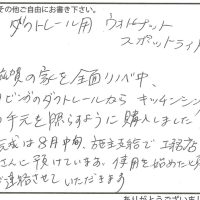 その他ご自由にお書き下さい。
ダクトレール用 ウォルナット
スポットライト
築の家を全面リノベ中、
ビングのダクトレールから キッチンシン
手元を照らすように購入しました
完成は8月中旬、施主支給で工務店
さんに預けています。使用を始めたら
ご連絡させていただきます
ありがとうございまし